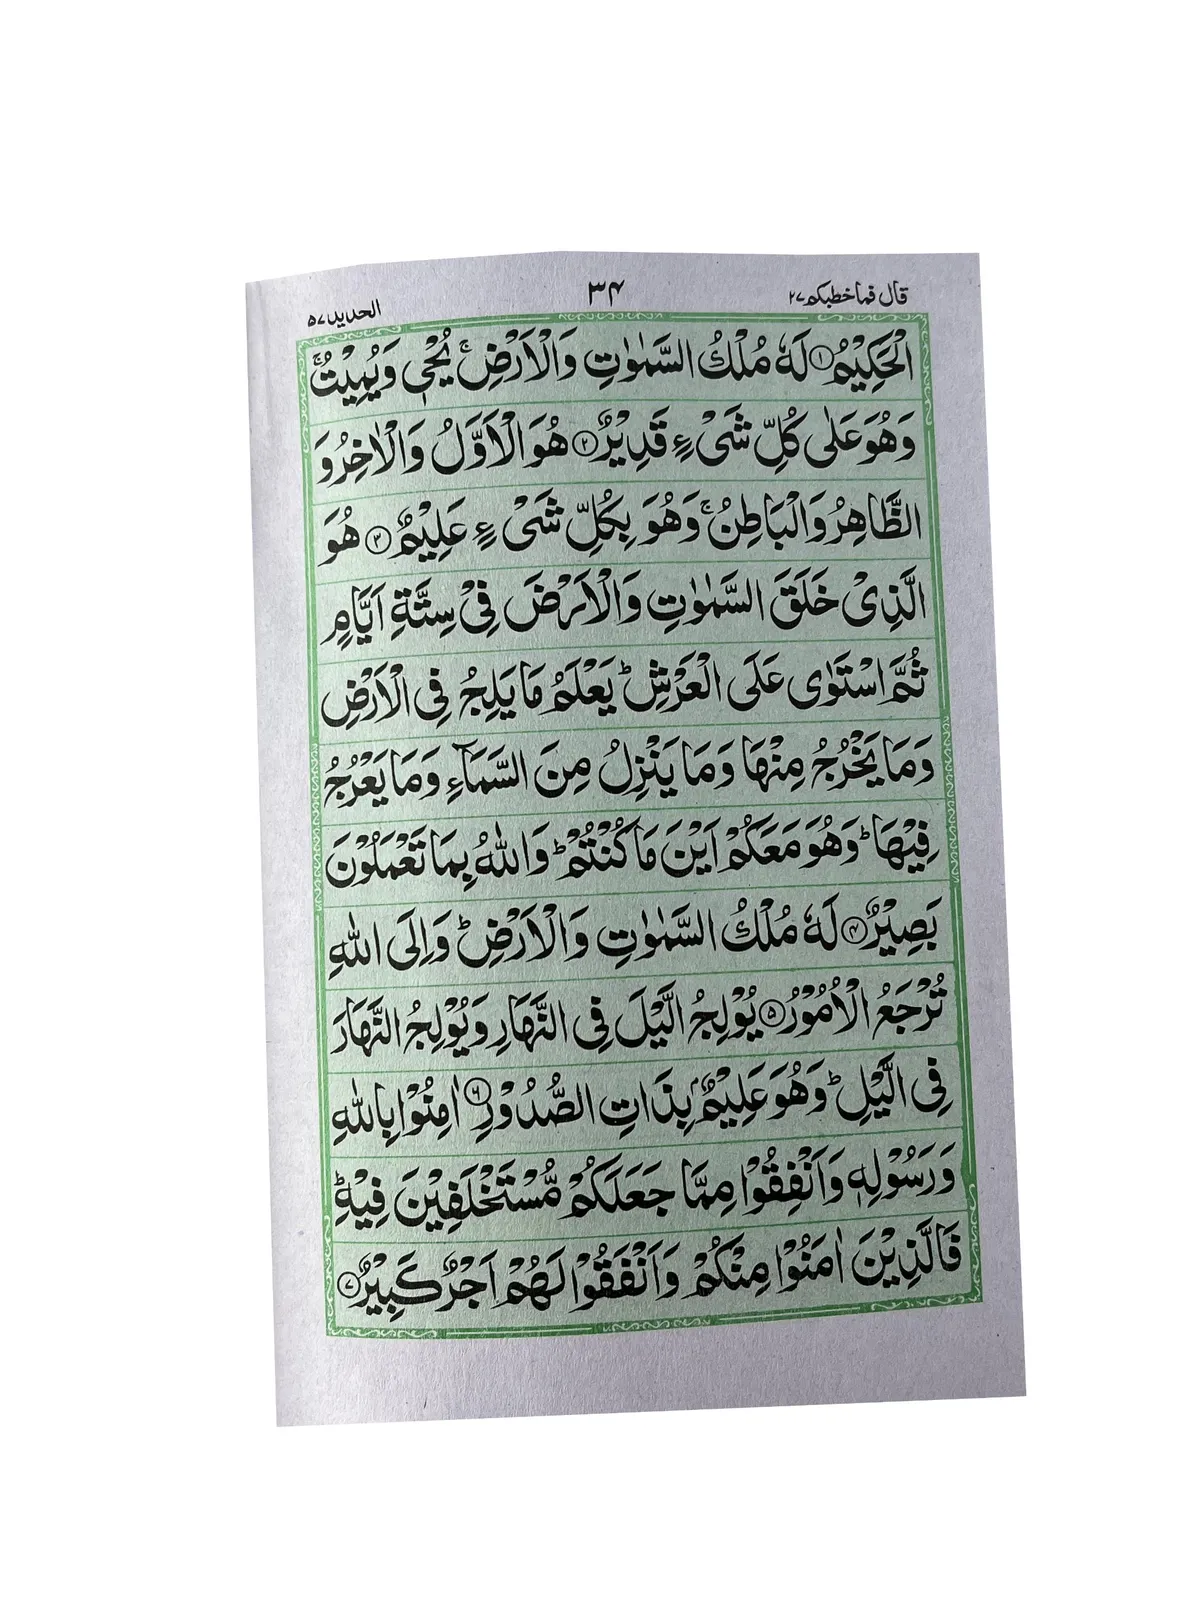 قال فما خطبكم ٢٧
٣٤
الحديد ٥٧
الْحَكِيْمُ ① لَهٗ مُلْكُ السَّمٰوٰتِ وَالْاَرْضِ ۚ يُحْيٖ وَيُمِيْتُ ۚ
وَهُوَ عَلٰى كُلِّ شَيْءٍ قَدِيْرٌ ② هُوَ الْاَوَّلُ وَالْاٰخِرُ وَ
الظَّاهِرُ وَالْبَاطِنُ ۚ وَهُوَ بِكُلِّ شَيْءٍ عَلِيْمٌ ③ هُوَ
الَّذِيْ خَلَقَ السَّمٰوٰتِ وَالْاَرْضَ فِيْ سِتَّةِ اَيَّامٍ
ثُمَّ اسْتَوٰى عَلَى الْعَرْشِ ؕ يَعْلَمُ مَا يَلِجُ فِى الْاَرْضِ
وَمَا يَخْرُجُ مِنْهَا وَمَا يَنْزِلُ مِنَ السَّمَآءِ وَمَا يَعْرُجُ
فِيْهَا ؕ وَهُوَ مَعَكُمْ اَيْنَ مَا كُنْتُمْ ؕ وَاللّٰهُ بِمَا تَعْمَلُوْنَ
بَصِيْرٌ ④ لَهٗ مُلْكُ السَّمٰوٰتِ وَالْاَرْضِ ؕ وَاِلَى اللّٰهِ
تُرْجَعُ الْاُمُوْرُ ⑤ يُوْلِجُ الَّيْلَ فِى النَّهَارِ وَيُوْلِجُ النَّهَارَ
فِى الَّيْلِ ؕ وَهُوَ عَلِيْمٌۢ بِذَاتِ الصُّدُوْرِ ⑥ اٰمِنُوْا بِاللّٰهِ
وَرَسُوْلِهٖ وَاَنْفِقُوْا مِمَّا جَعَلَكُمْ مُّسْتَخْلَفِيْنَ فِيْهِ ؕ
فَالَّذِيْنَ اٰمَنُوْا مِنْكُمْ وَاَنْفَقُوْا لَهُمْ اَجْرٌ كَبِيْرٌ ⑦